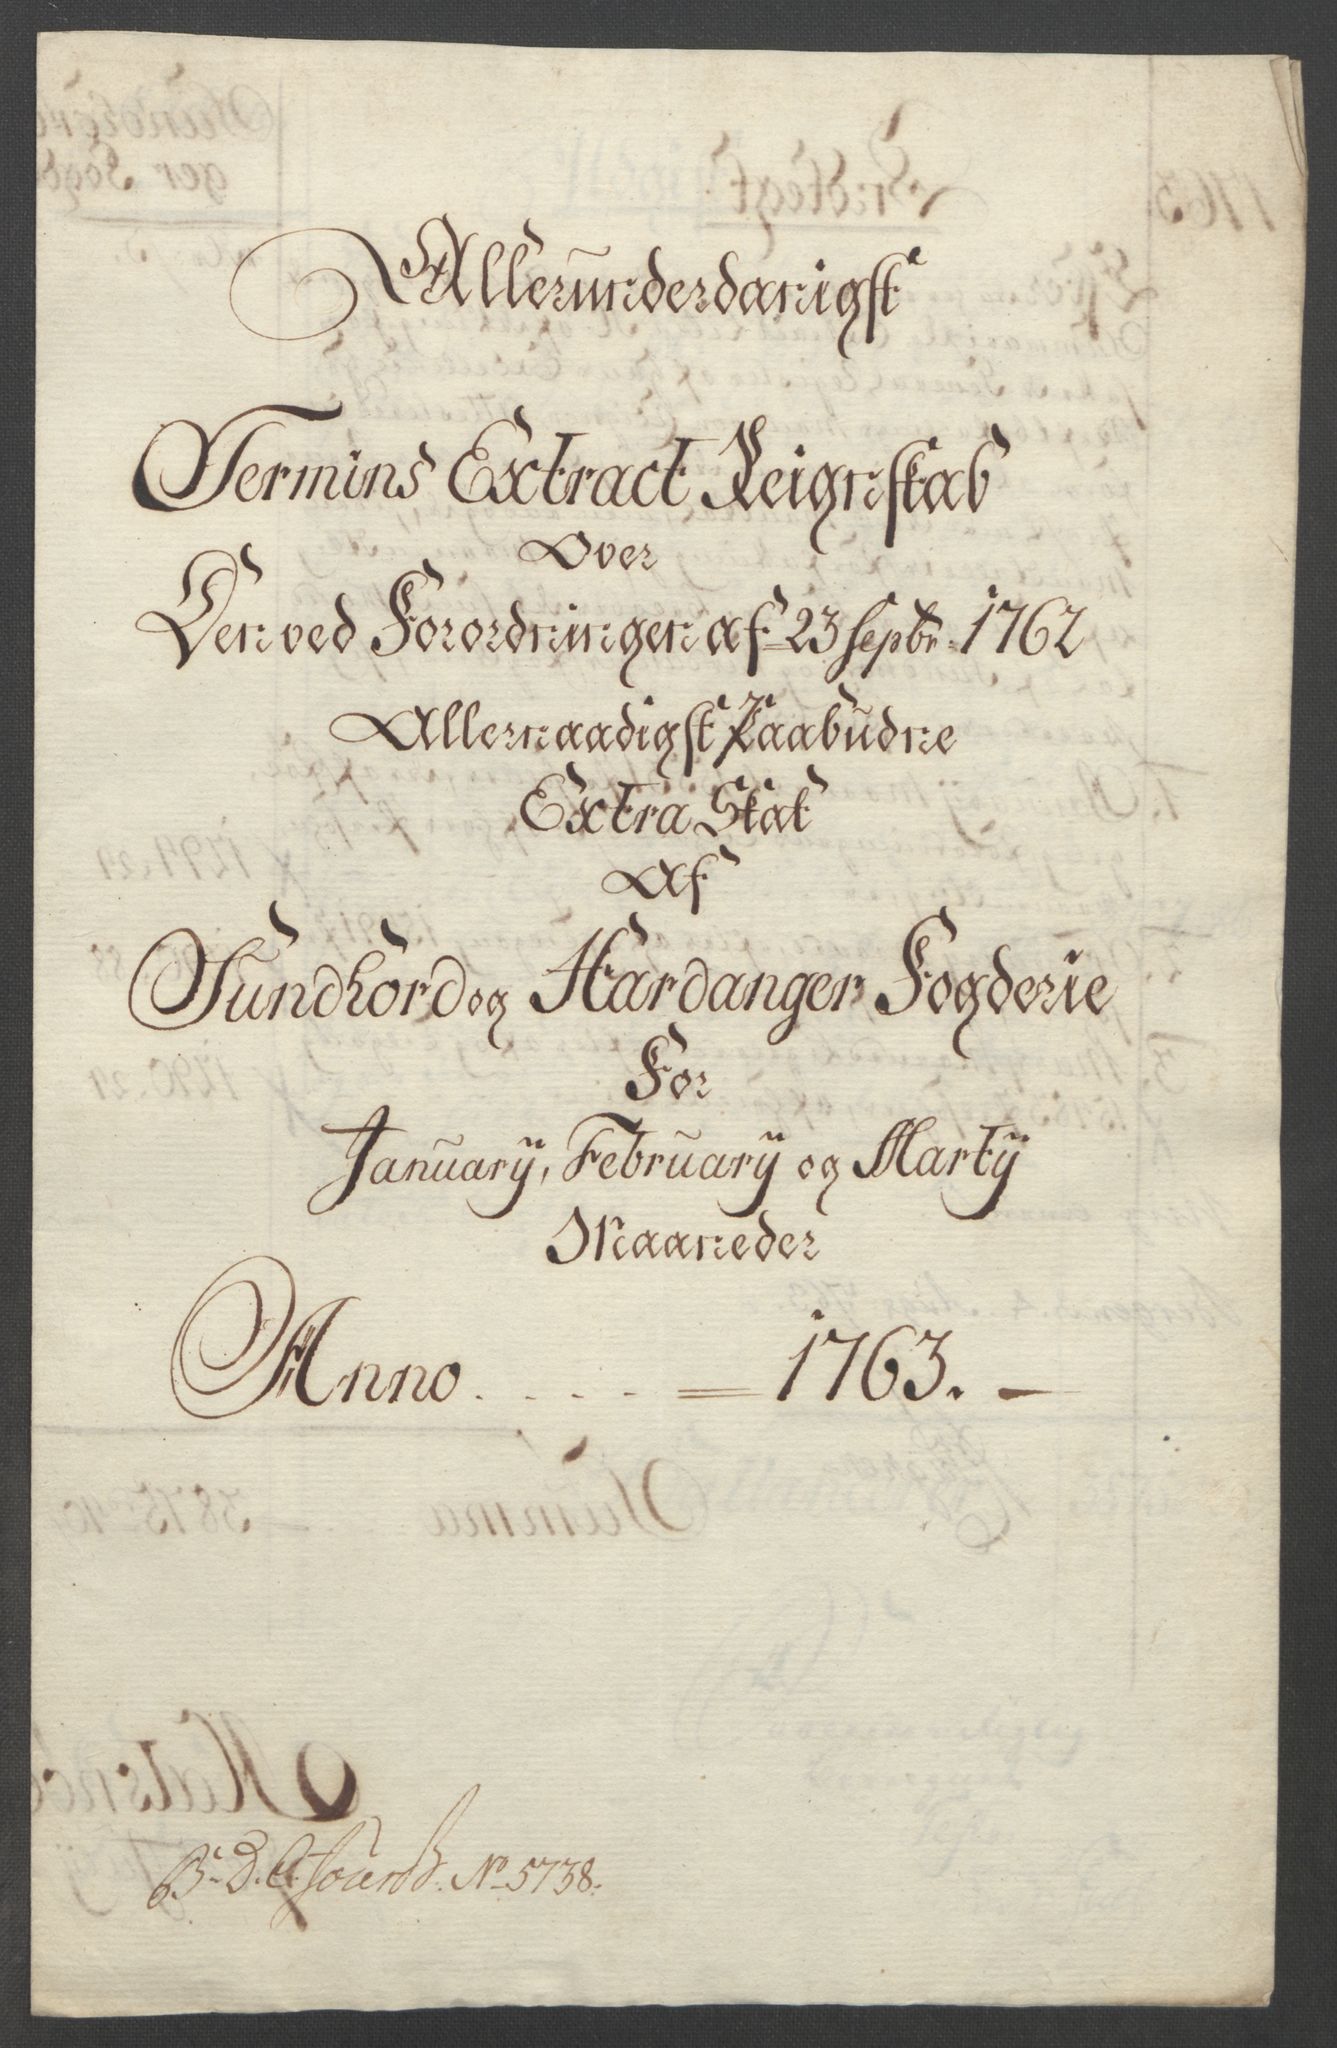 Allerunderdanigst
Termins Extract Reignskab
Over
Den ved Forordningen af 23 Septbr. 1762
Allernaadigst Paabudne
Extra Skat
Af
Sundhord og Hardanger Fogderie
For
Januarij, Februarij og Martij
Maaneder
Anno . . . . = 1763. —
No 5738.